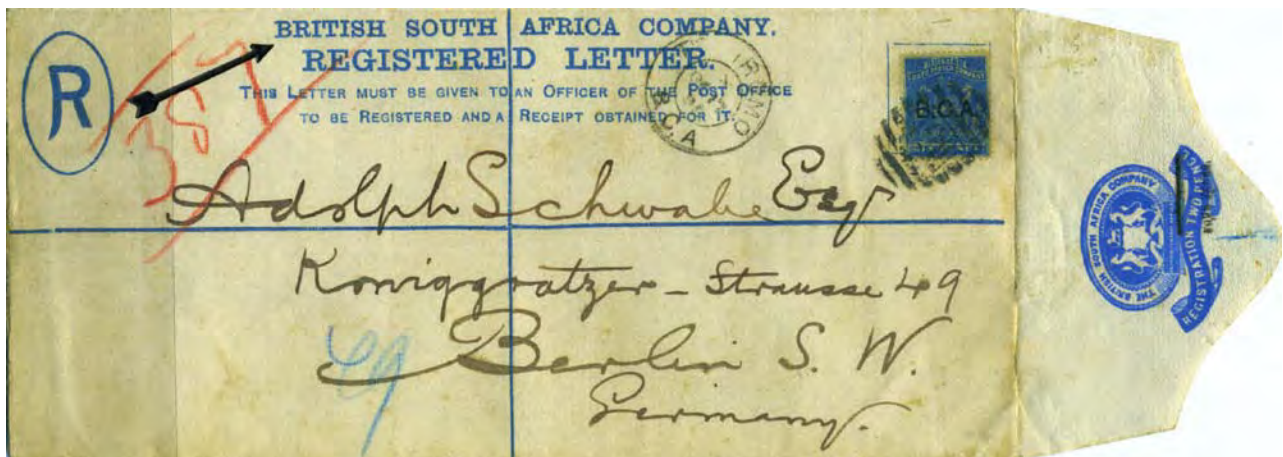 BRITISH SOUTH AFRICA COMPANY.
REGISTERED LETTER.
R
387
THIS LETTER MUST BE GIVEN TO AN OFFICER OF THE POST OFFICE
TO BE REGISTERED AND A RECEIPT OBTAINED FOR IT.
B.C.A
B.C.A.
Adolph Schwabe Esq
Koniggratzer - Strausse 49
Berlin S. W.
Germany.
THE BRITISH SOUTH AFRICA COMPANY
REGISTRATION TWO PENCE